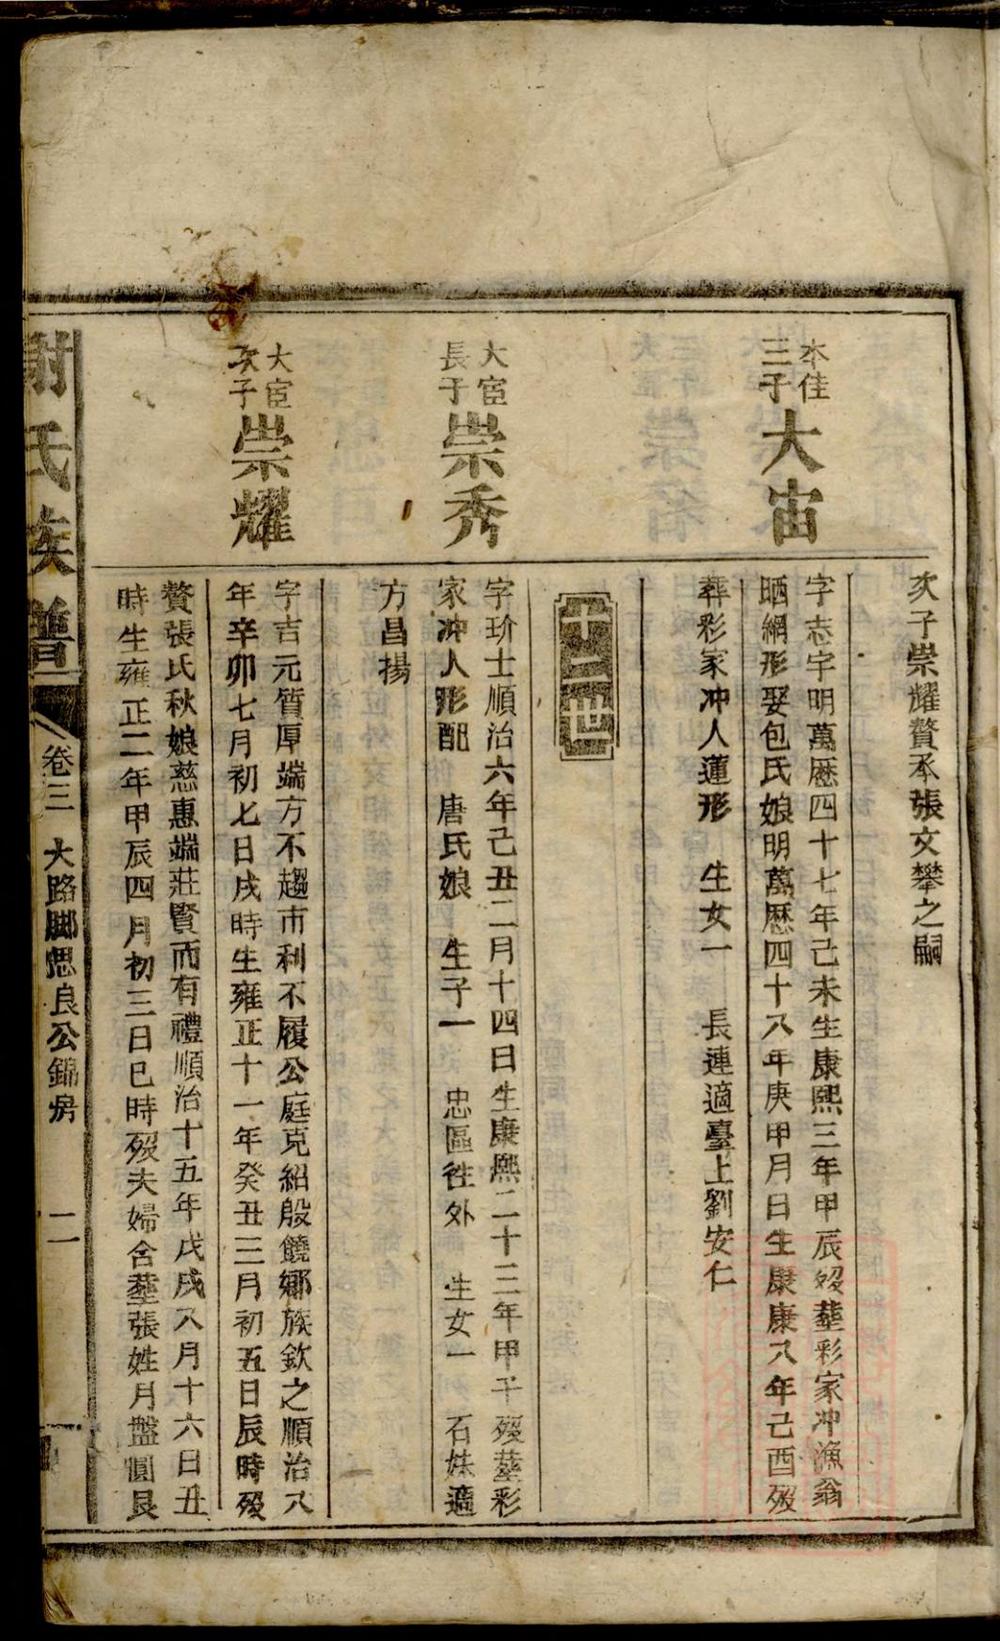 次子崇耀贅承張文攀之嗣
本佳
三子
大宙
字志宇明萬歷四十七年己未生康熙三年甲辰歿塟彩家冲漁翁
晒網形娶包氏娘明萬歷四十八年庚申月日生康康八年己酉歿
葬彩家冲人蓮形 生女一 長連適臺上劉安仁
十二世
大宦
長子
崇秀
字玠士順治六年己丑二月十四日生康熙二十三年甲子歿塟彩
家冲人形配 唐氏娘 生子一 忠區徃外 生女一 石妹適
方昌揚
大宦
次子
崇耀
字吉元質厚端方不趨市利不履公庭克紹殷饒鄉族欽之順治八
年辛卯七月初七日戌時生雍正十一年癸丑三月初五日辰時歿
贅張氏秋娘慈惠端莊賢而有禮順治十五年戊戌八月十六日丑
時生雍正二年甲辰四月初三日巳時歿夫婦合塟張姓月盤圓艮
謝氏族譜 卷三 大路脚思良公錦房 二